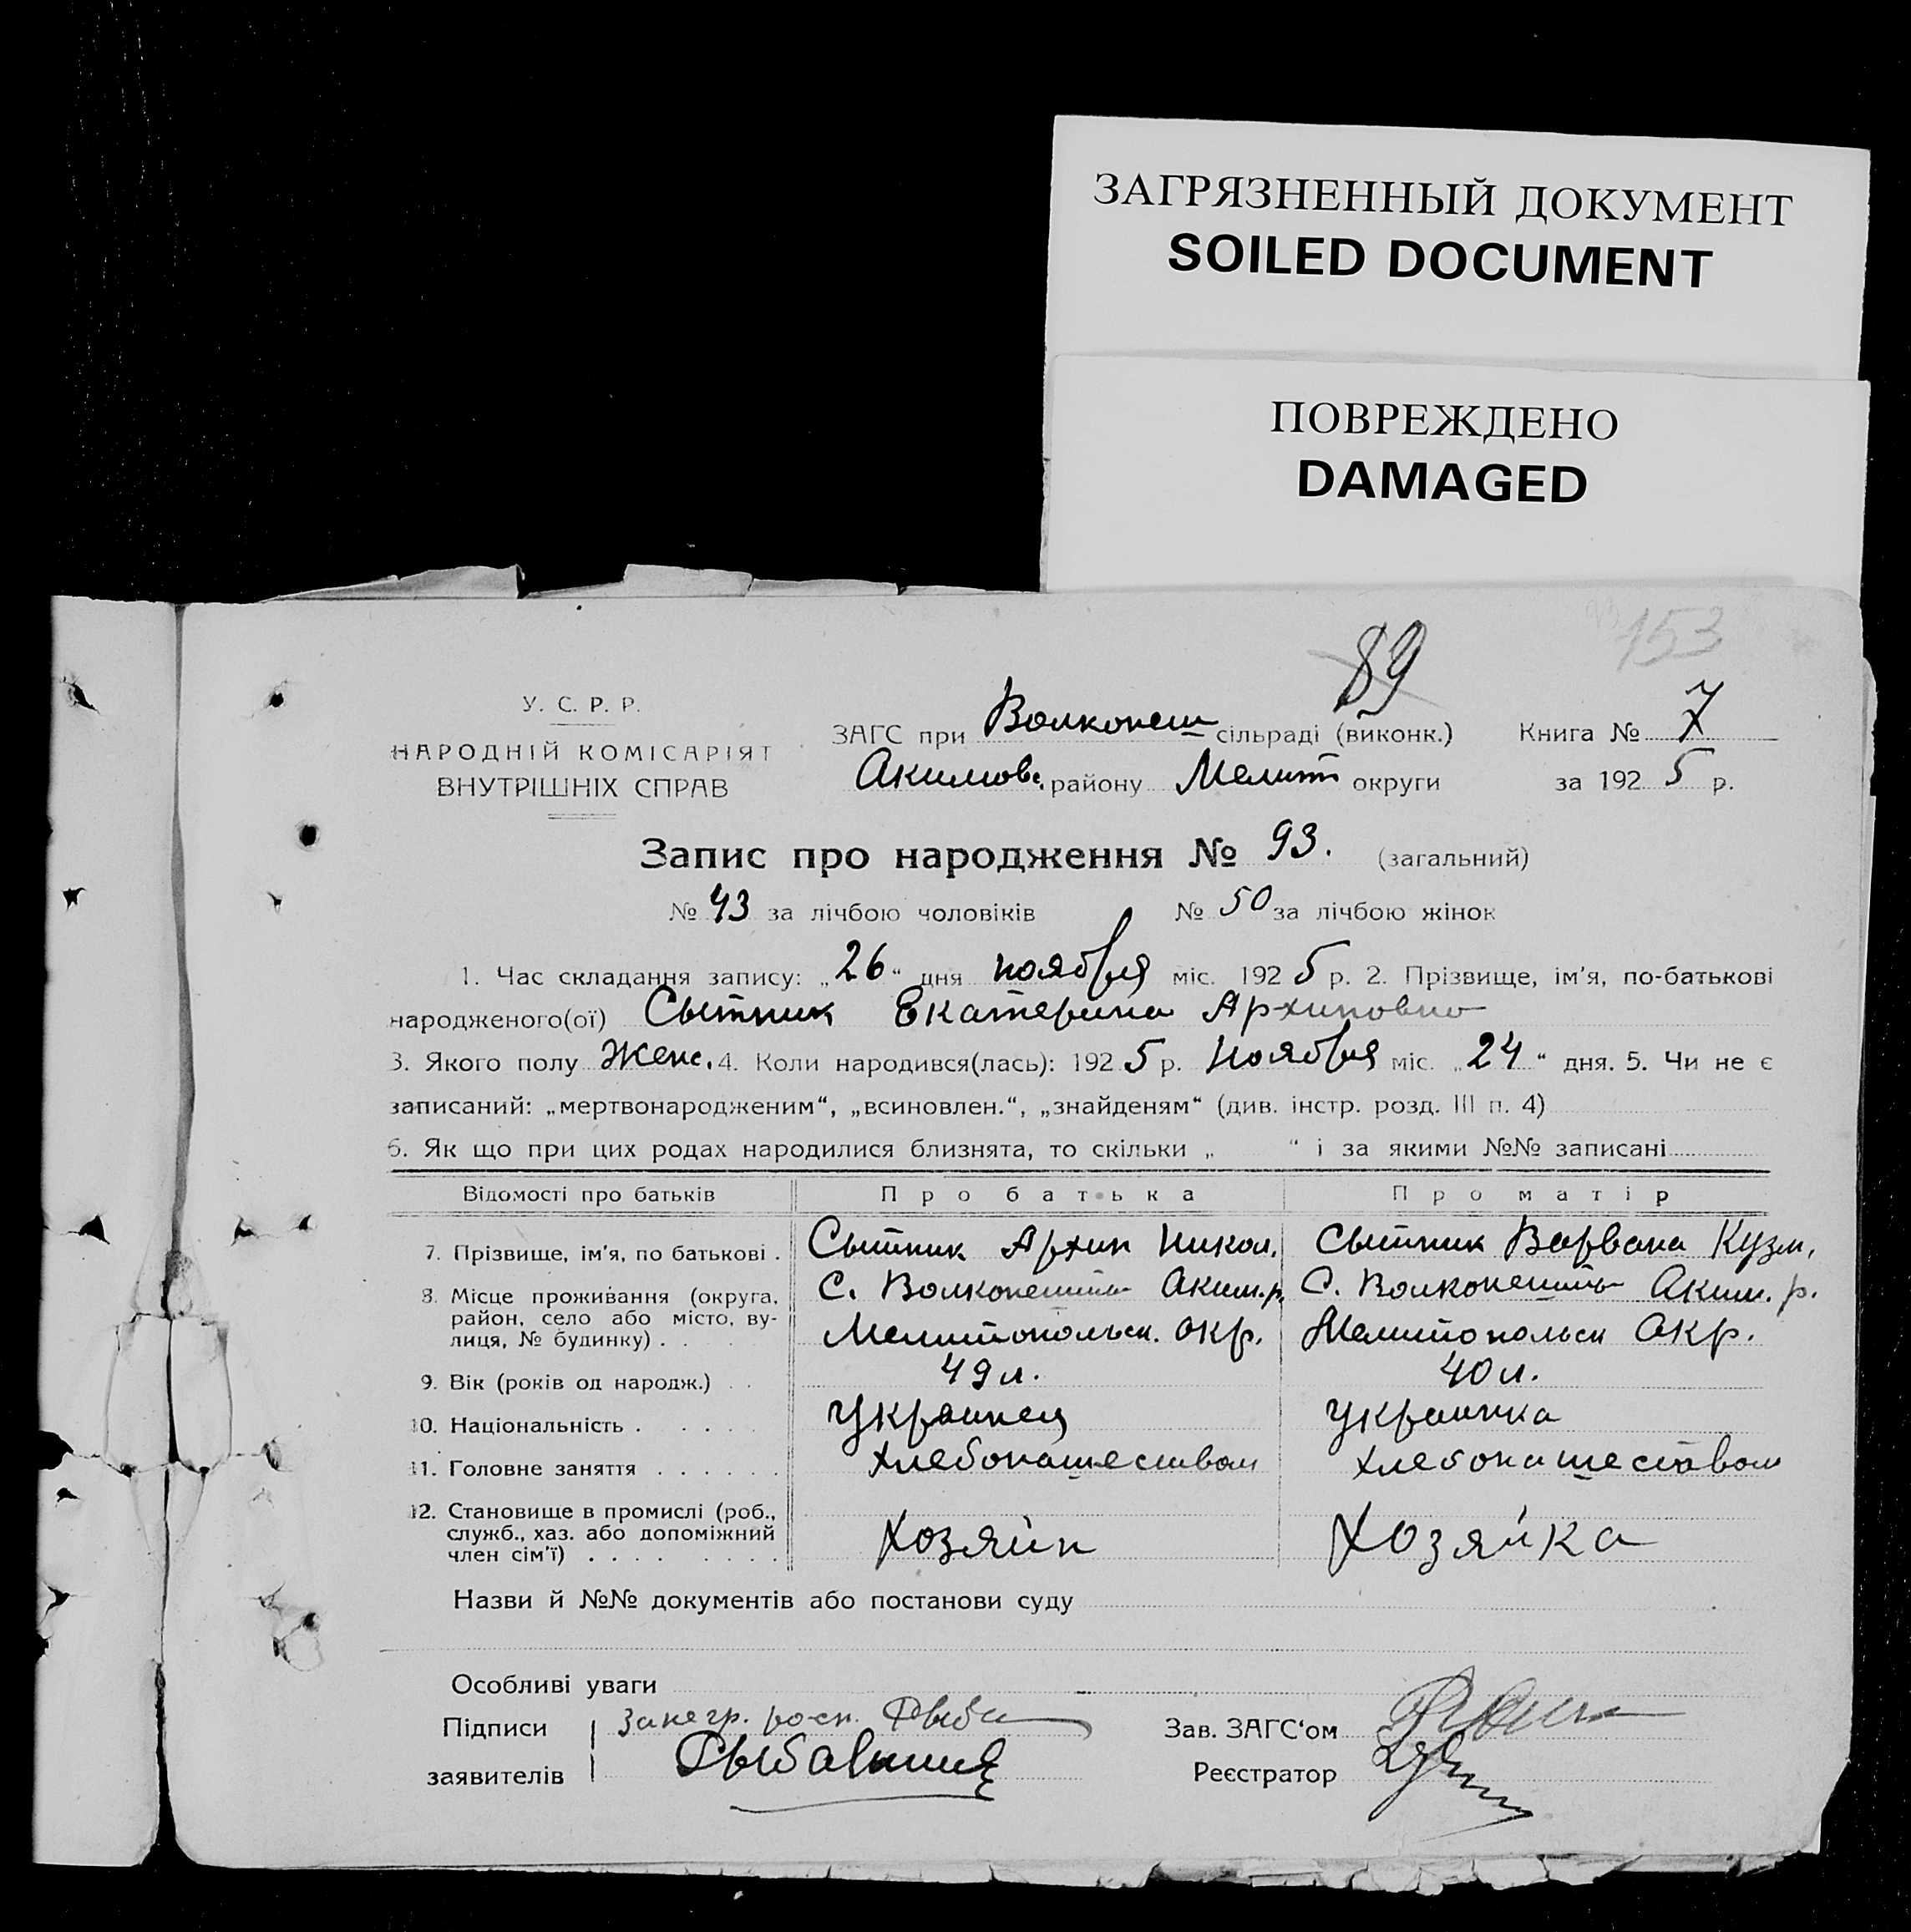 ЗАГРЯЗНЕННЫЙ ДОКУМЕНТ
SOILED DOCUMENT
ПОВРЕЖДЕНО
DAMAGED
153
89
У. С. Р. Р.
НАРОДНІЙ КОМІСАРІЯТ
ВНУТРІШНІХ СПРАВ
ЗАГС при Волконеш сільраді (виконк.) Книга № 7
Акимовс. району Мелит округи за 1925 р.
Запис про народження № 93. (загальний)
№ 43 за лічбою чоловіків № 50 за лічбою жінок
1. Час складання запису: „26“ дня ноября міс. 1925 р. 2. Прізвище, ім'я, по-батькові
народженого(ої) Сытник Екатерина Архиповна
3. Якого полу Женс. 4. Коли народився(лась): 1925 р. Ноября міс. „24“ дня. 5. Чи не є
записаний: „мертвонародженим“, „всиновлен.“, „знайденям“ (див. інстр. розд. III п. 4)
6. Як що при цих родах народилися близнята, то скільки „ “ і за якими №№ записані
Відомості про батьків Про батька Про матір
7. Прізвище, ім'я, по батькові . Сытник Архип Никол. Сытник Варвара Кузм.
8. Місце проживання (округа, район, село або місто, вулиця, № будинку) . . С. Волконешты Аким. р. С. Волконешты Аким. р.
Мелитопольск. окр. Мелитопольск Окр.
9. Вік (років од народж.) . . 49 л. 40 л.
10. Національність . . . . . Украинец Украинка
11. Головне заняття . . . . . . Хлебопашеством Хлебопашеством
12. Становище в промислі (роб., служб., хаз. або допоміжний член сім'ї) . . . . . . . . Хозяин Хозяйка
Назви й №№ документів або постанови суду
Особливі уваги
Підписи За негр. росп. Рыба Зав. ЗАГС‘ом
заявителів Реєстратор